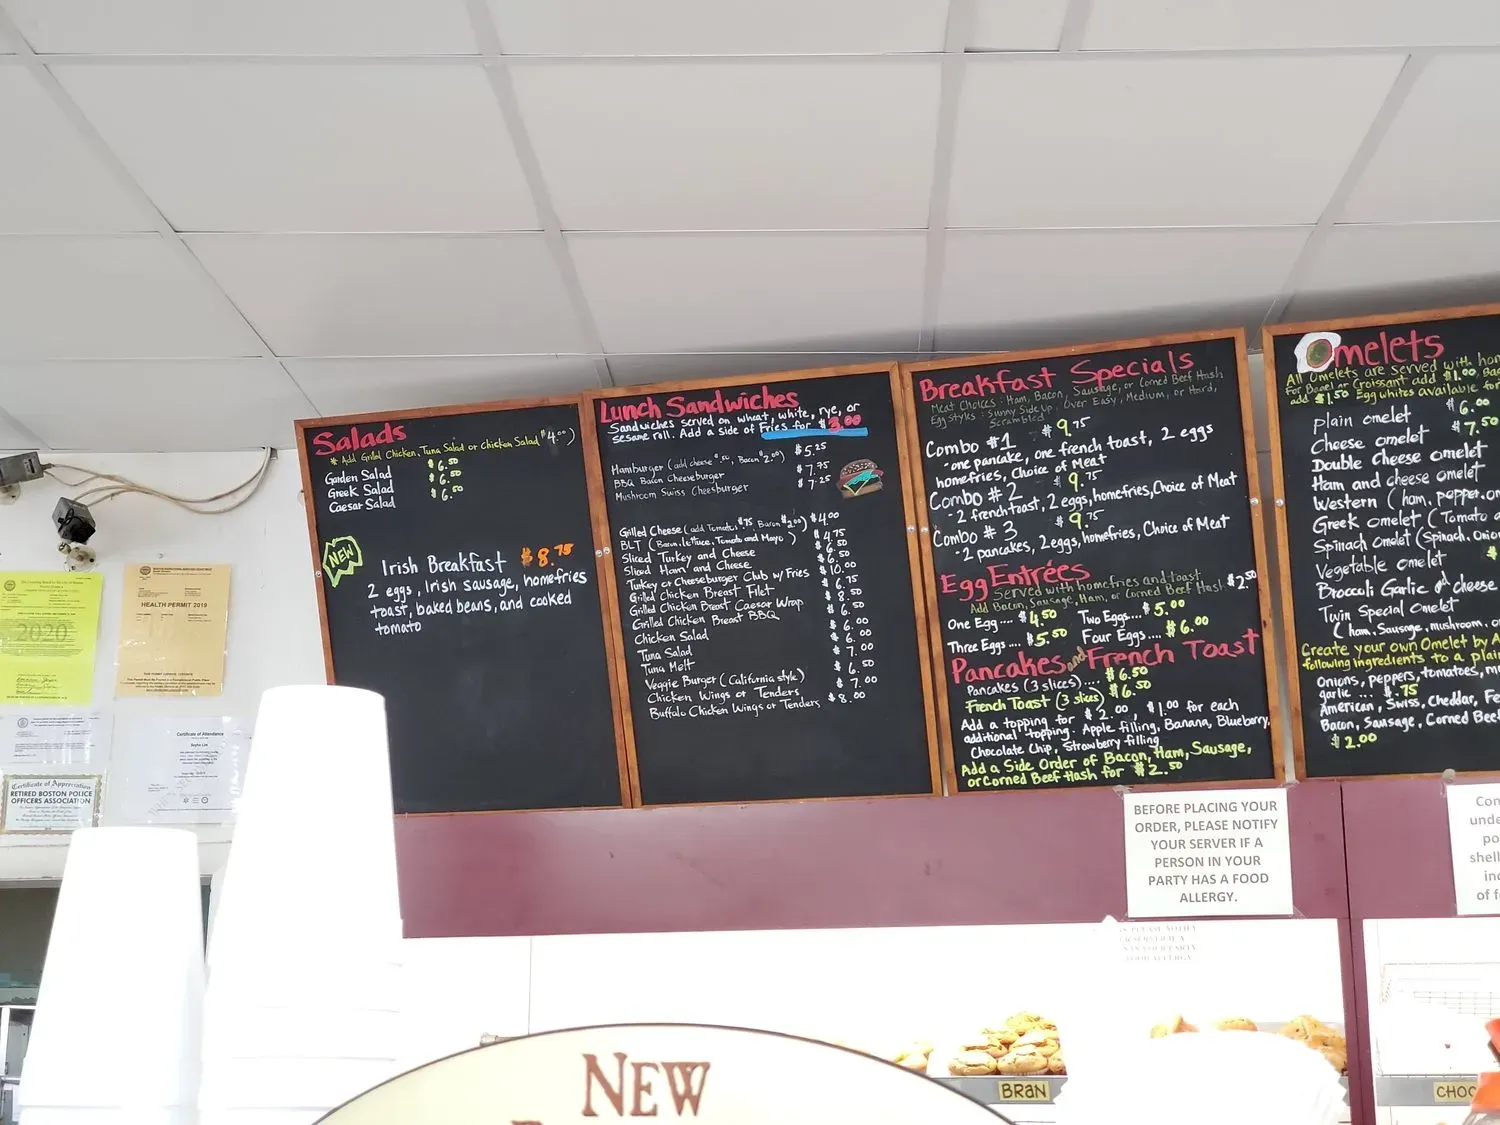 Salads
* Add Grilled Chicken, Tuna Salad or Chicken Salad $4.00)
Garden Salad $6.50
Greek Salad $6.50
Caesar Salad $6.50
NEW
Irish Breakfast $8.75
2 eggs, Irish sausage, homefries
toast, baked beans, and cooked
tomato
Lunch Sandwiches
Sandwiches served on wheat, white, rye, or
sesame roll. Add a side of Fries for $3.00
Hamburger (add cheese $.50, Bacon $2.00) $5.25
BBQ Bacon Cheeseburger $7.75
Mushroom Swiss Cheesburger $7.25
Grilled Cheese (add Tomato $.75 Bacon $2.00) $4.00
BLT (Bacon, lettuce, Tomato and Mayo) $4.75
Sliced Turkey and Cheese $6.50
Sliced Ham and Cheese $6.50
Turkey or Cheeseburger Club w/ Fries $10.00
Grilled Chicken Breast Filet $6.75
Grilled Chicken Breast Caesar Wrap $8.50
Grilled Chicken Breast BBQ $6.50
Chicken Salad $6.00
Tuna Salad $6.00
Tuna Melt $7.00
Veggie Burger (California style) $6.50
Chicken Wings or Tenders $7.00
Buffalo Chicken Wings or Tenders $8.00
Breakfast Specials
Meat Choices: Ham, Bacon, Sausage, or Corned Beef Hash
Egg Styles: Sunny Side Up, Over Easy, Medium, or Hard,
Scrambled
Combo #1 $9.75
-one pancake, one french toast, 2 eggs
homefries, Choice of Meat
Combo #2 $9.75
-2 french toast, 2 eggs, homefries, Choice of Meat
Combo #3 $9.75
-2 pancakes, 2 eggs, homefries, Choice of Meat
Egg Entrées
Served with homefries and toast
Add Bacon, Sausage, Ham, or Corned Beef Hash $2.50
One Egg.... $4.50 Two Eggs.... $5.00
Three Eggs .... $5.50 Four Eggs.... $6.00
Pancakes and French Toast
Pancakes (3 slices).... $6.50
French Toast (3 slices) $6.50
Add a topping for $2.00, $1.00 for each
additional topping. Apple filling, Banana, Blueberry,
Chocolate Chip, Strawberry filling
Add a Side Order of Bacon, Ham, Sausage,
or Corned Beef Hash for $2.50
Omelets
All Omelets are served with hom
For Bagel or Croissant add $1.00,
add $1.50 Egg whites available for
plain omelet $6.00
Cheese omelet $7.50
Double Cheese omelet
Ham and cheese omelet
Western (ham, pepper, on
Greek omelet (Tomato a
Spinach Omelet (Spinach, Onio
Vegetable omelet $
Broccoli Garlic & cheese
Twin Special Omelet
(ham, Sausage, mushroom, o
Create your own Omelet by A
following ingredients to a plain
Onions, peppers, tomatoes, m
garlic ... $.75
American, Swiss, Cheddar, Fe
Bacon, Sausage, Corned Bee
$2.00
2020
HEALTH PERMIT 2019
Certificate of Attendance
Certificate of Appreciation
RETIRED BOSTON POLICE
OFFICERS ASSOCIATION
BEFORE PLACING YOUR
ORDER, PLEASE NOTIFY
YOUR SERVER IF A
PERSON IN YOUR
PARTY HAS A FOOD
ALLERGY.
Con
unde
po
shell
inc
of f
BRAN
CHOC
NEW